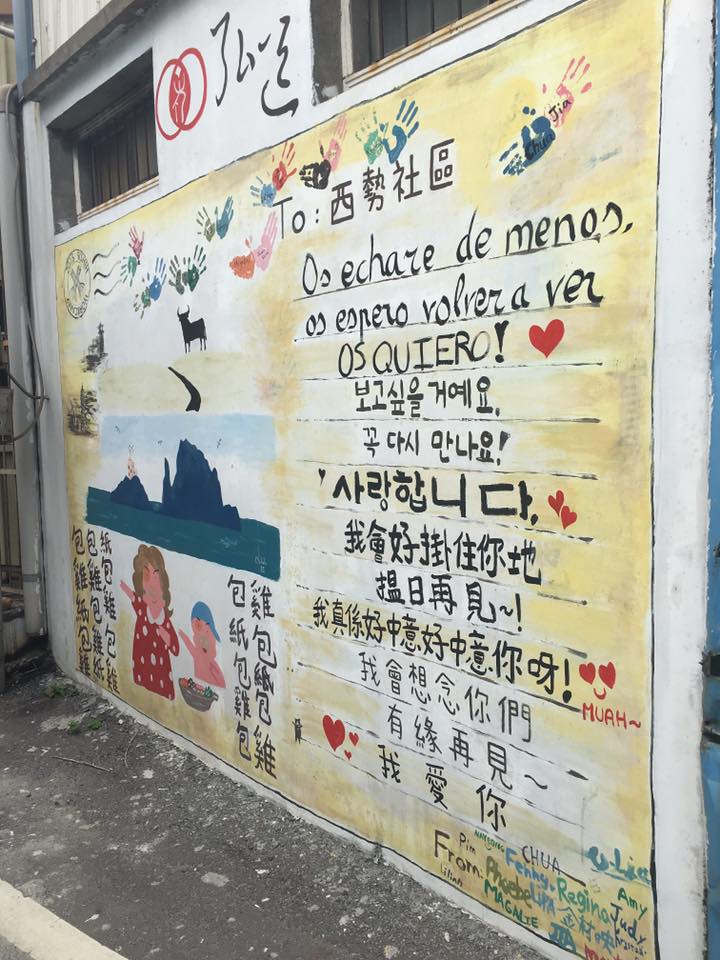 弘道
Chua
Jia
To：西勢社區
Os echare de menos,
os espero volver a ver
OS QUIERO!
보고싶을거예요.
꼭 다시 만나요!
사랑합니다.
我會好掛住你地
搵日再見~!
我真係好中意好中意你呀!
MUAH~
我會想念你們
有緣再見~
我愛你
雞包紙包雞
包紙包雞包
From:
Pim
Lilian
CHUA
Fenny
Phoebe
Regina
Amy
Judy
MAGALIE
JIA